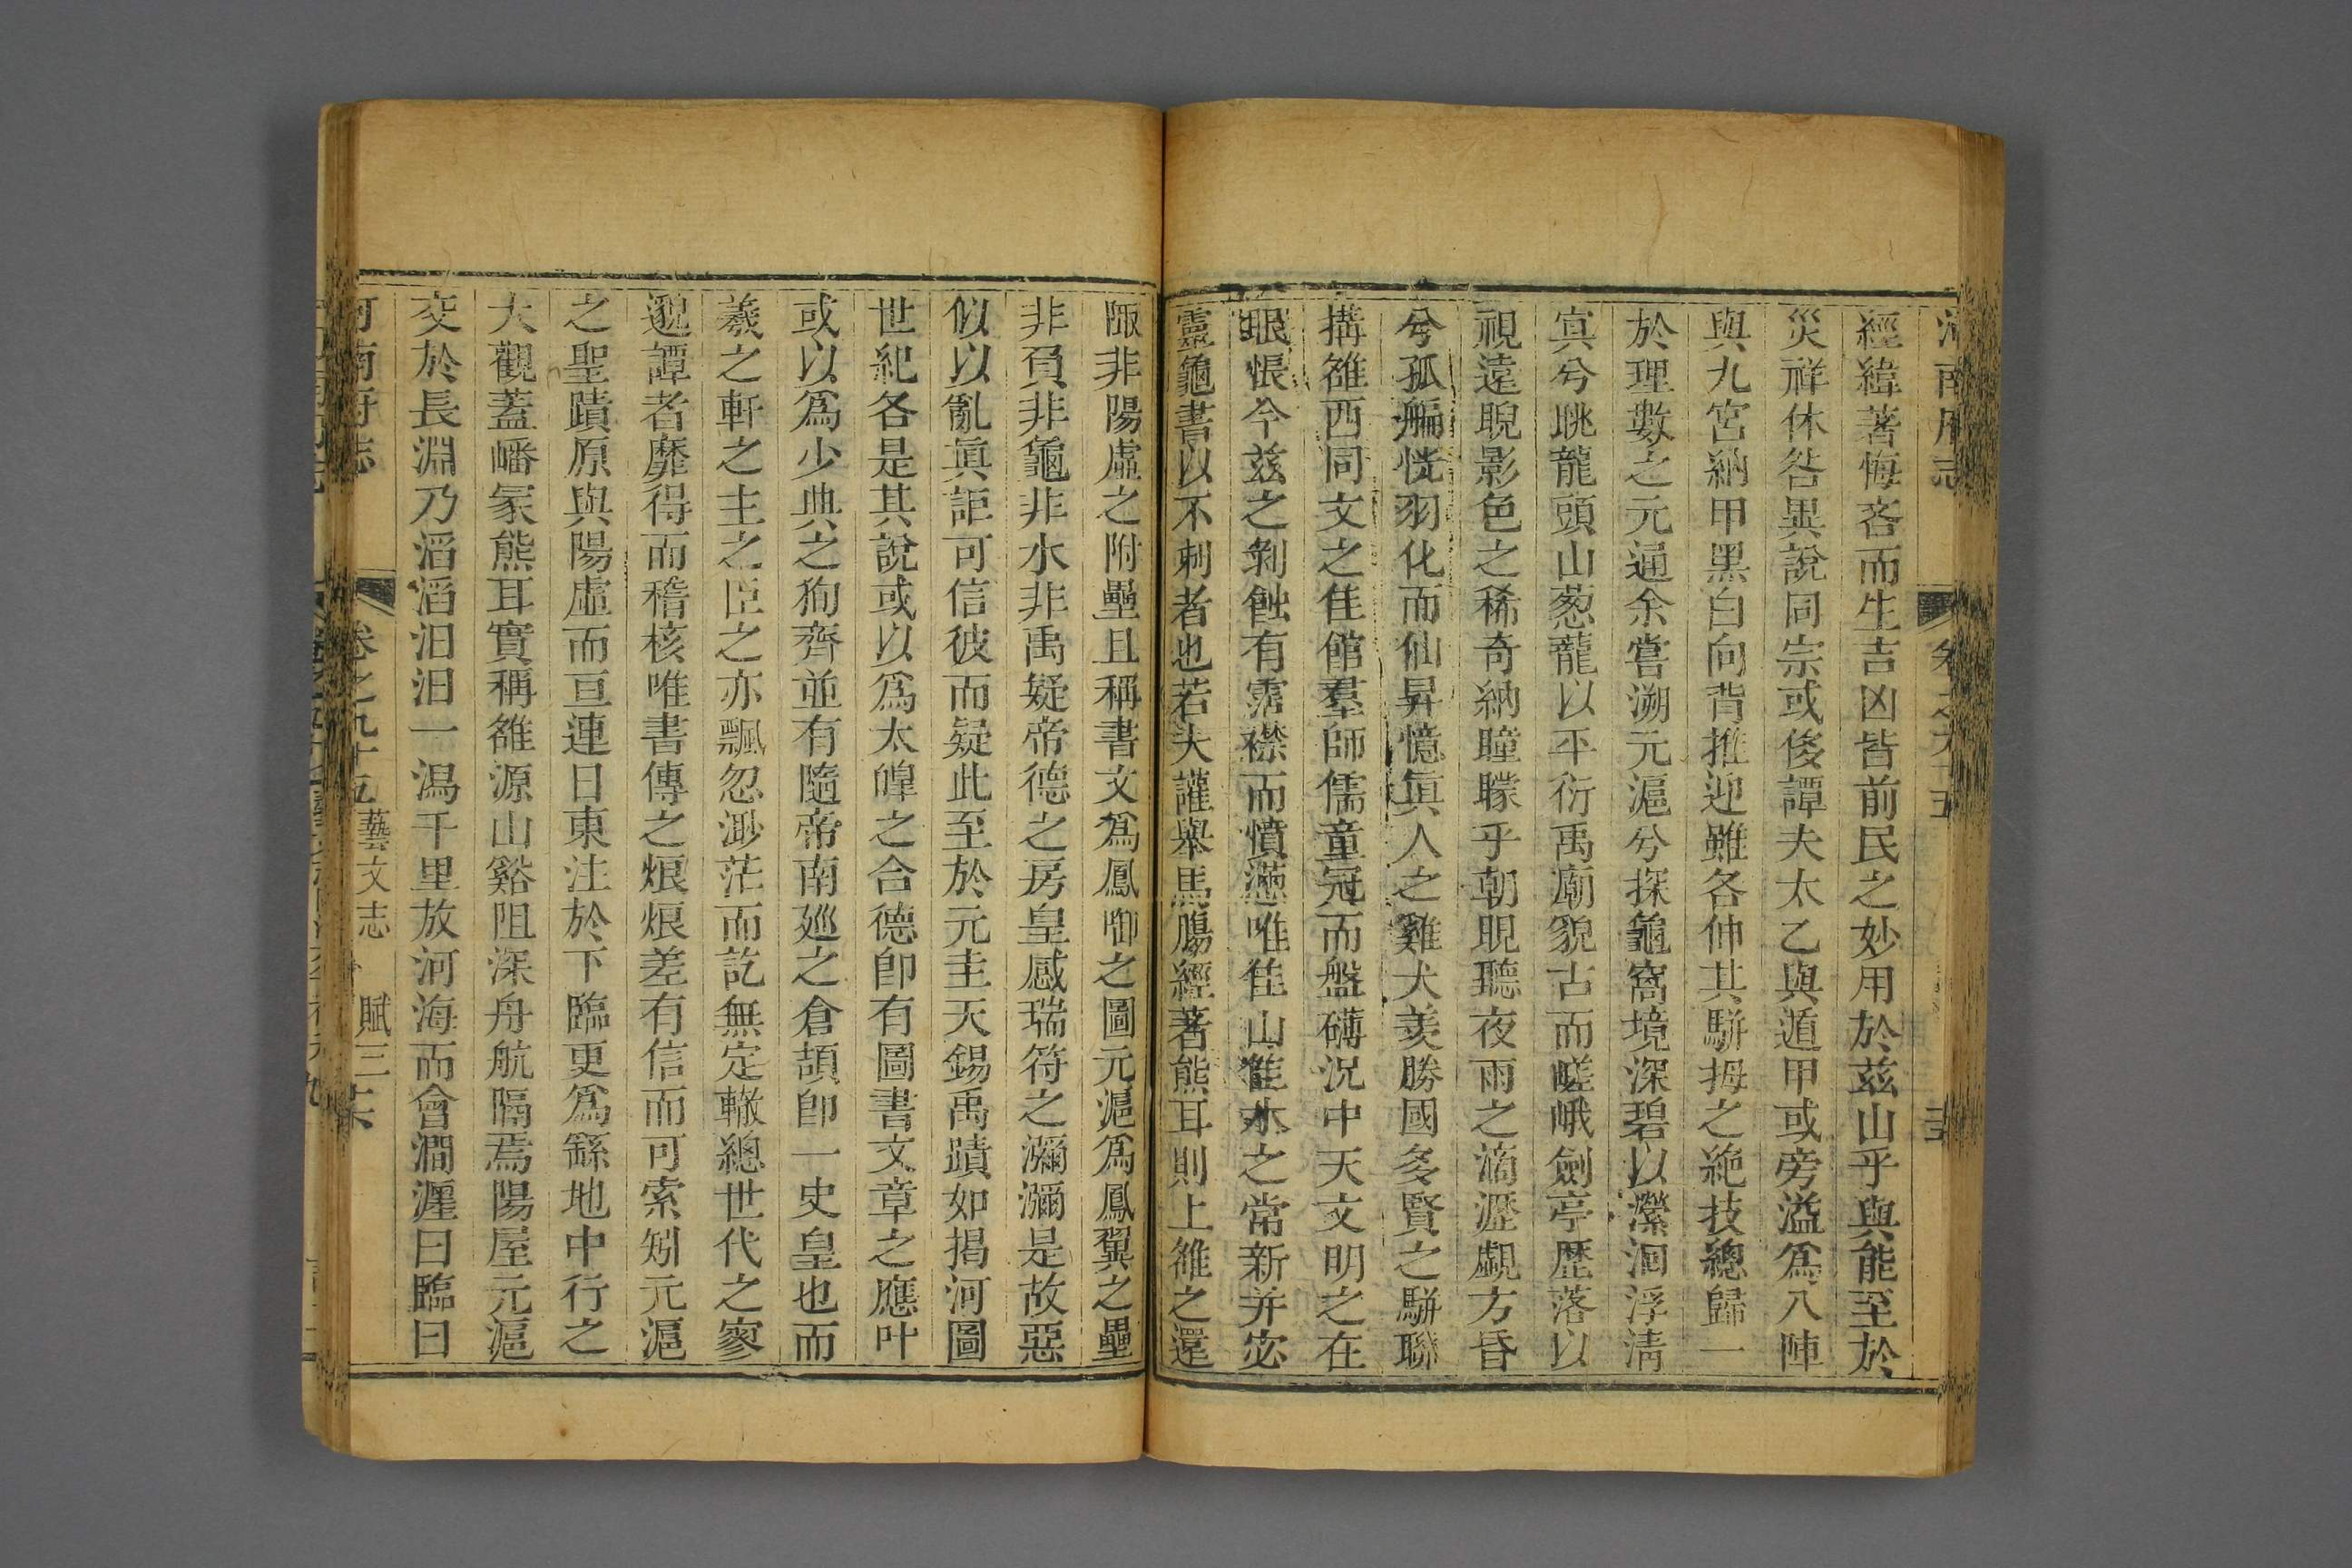 經緯著悔吝而生吉凶皆前民之妙用於兹山乎與能至於
災祥休咎異說同宗或後譚夫太乙與遁甲或旁溢爲八陣
與九宮納甲黑白向背推迎雖各伸其駢拇之絶技總歸一
於理數之元通余嘗溯元滬兮探龜窩境深碧以瀠洄浮淸
㝠兮眺龍頭山葱蘢以平衍禹廟貌古而嵯峨劍亭歷落以
視遠睨影色之稀奇納瞳矇乎朝晛聽夜雨之滴瀝覷方昏
兮孤艑恍羽化而仙昇憶眞人之雞犬羡勝國多賢之駢聯
搆雒西同文之佳館羣師儒童冠而盤礴況中天文明之在
眼悵今兹之剝蝕有霑襟而憤懣唯佳山雒水之常新并宓
靈龜書以不刺者也若夫讙舉馬腸經著熊耳則上雒之還
陬非陽虛之附壘且稱書文爲鳳啣之圖元滬爲鳳翼之壘
非負非龜非水非禹疑帝德之房皇感瑞符之瀰瀰是故惡
似以亂眞詎可信彼而疑此至於元圭天錫禹蹟如揭河圖
世紀各是其說或以爲太皥之合德卽有圖書文章之應叶
或以爲少典之狥齊並有隨帝南廵之倉頡卽一史皇也而
羲之軒之主之臣之亦飄忽渺茫而訖無定轍總世代之寥
邈譚者靡得而稽核唯書傳之烺烺差有信而可索矧元滬
之聖蹟原與陽虛而亘連日東注於下臨更爲繇地中行之
大觀蓋嶓冢熊耳實稱雒源山谿阻深舟航隔焉陽屋元滬
交於長淵乃滔滔汨汨一瀉千里放河海而會澗瀍曰臨曰
河南府志
卷之九十五
藝文志
賦三